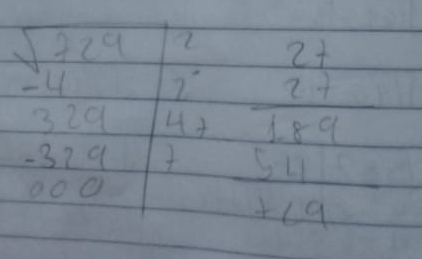 √729 | 2 27
-4 | 2 27
329 | 47 189
-329 | 7 54
000 729